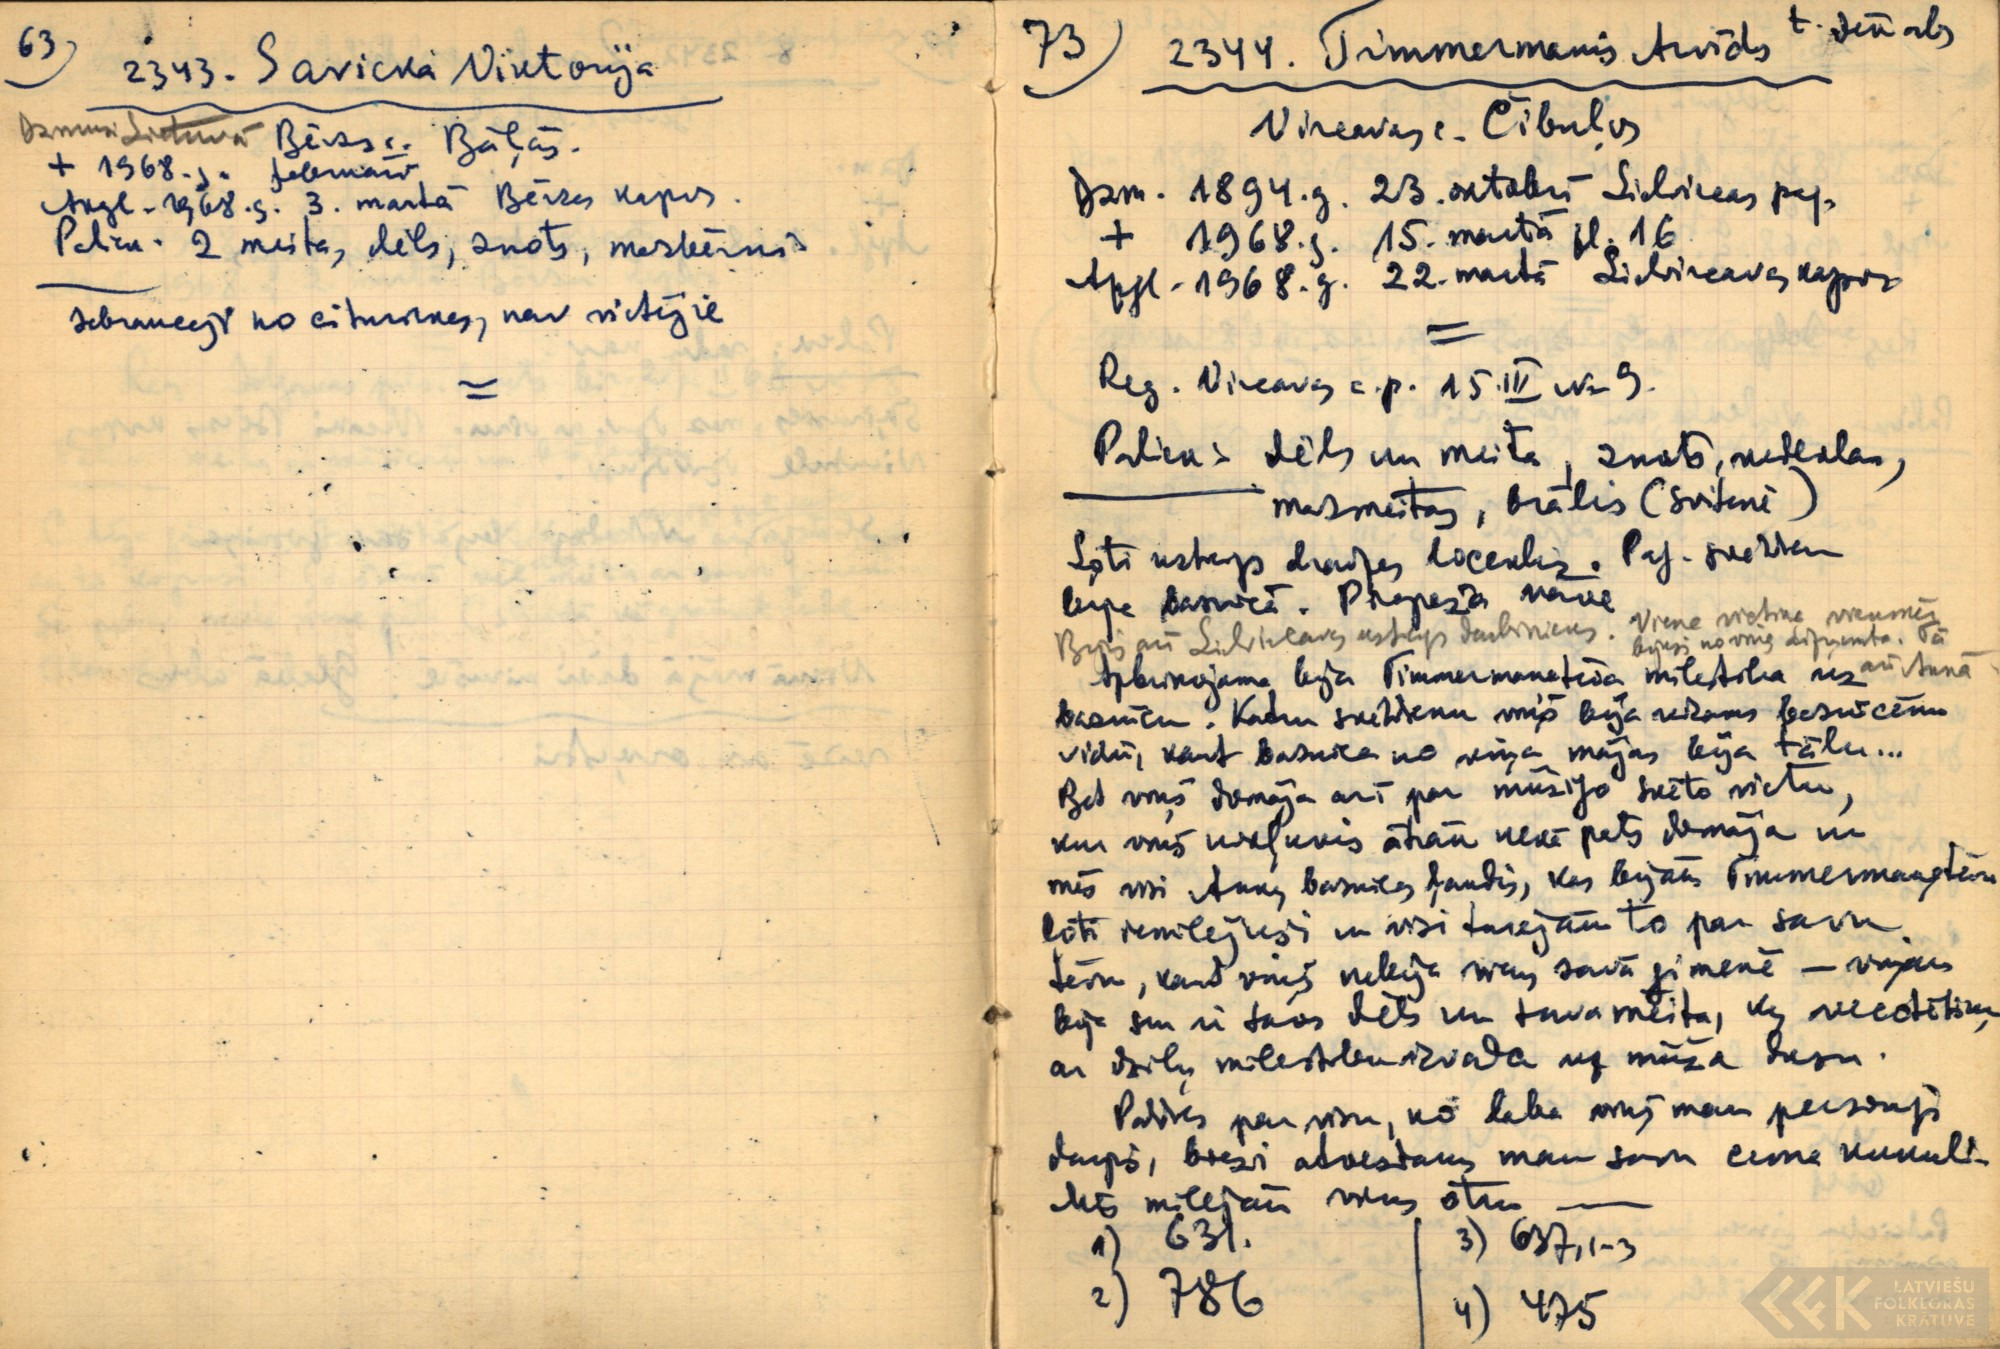 63)
2343. Savicka Viktorija
Dzimusi Lietuvā Bērzes c. Bāļās.
+ 1968.g. februārī
Apgl. 1968.g. 3. martā Bērzes kapos.
Paliek. 2 meitas, dēls, znots, mazbērni
iebraucēji no citurienes, nav vietējie
=
73)
2344. Timmermanis Arvīds t. dēls
Vircavas c. Cībuļos
Dzim. 1894.g. 23. oktobrī Lielvircavas pag.
+ 1968.g. 15. martā pl. 16
Apgl. 1968.g. 22. martā Lielvircavas kapos
=
Reg. Vircavas c.p. 15.III № 9.
Paliek: dēls un meita, znots, vedekla,
mazmeitas, brālis (Svitenē)
Ļoti uzticīgs draudzes loceklis. Pag. svētdien
bija baznīcā. Piepeša nāve
Bijis arī Lielvircavas uzticīgs darbinieks. Viena vietiņa vienmēr
bijusi no viņa aizņemta. Tā
arī Annā
Apbrīnojama bija Timmermaņtēva mīlestība uz
baznīcu. Katru svētdienu viņš bija redzams baznīcēnu
vidū, kaut baznīca no viņa mājas bija tālu...
Bet viņš domāja arī par mūžīgo svēto vietu,
kur viņš nokļuvis ātrāk nekā pats domāja un
mēs visi Annas baznīcas ļaudis, kas bijām Timmermaņtēvu
ļoti iemīlējuši un visi turējām to par savu
tēvu, kaut viņš nebija viens savā ģimenē — viņam
bija un ir savs dēls un sava meita, kas vecotētiņu
ar dziļu mīlestību izvada uz mūža dusu.
Paldies par visu, ko laba viņš man personīgi
darījis, bieži atvezdams man savu ciema kukuli.
Mēs mīlējām viens otru —
1) 631.
2) 786
3) 637,1-3
4) 475
LATVIEŠU
FOLKLORAS
KRĀTUVE